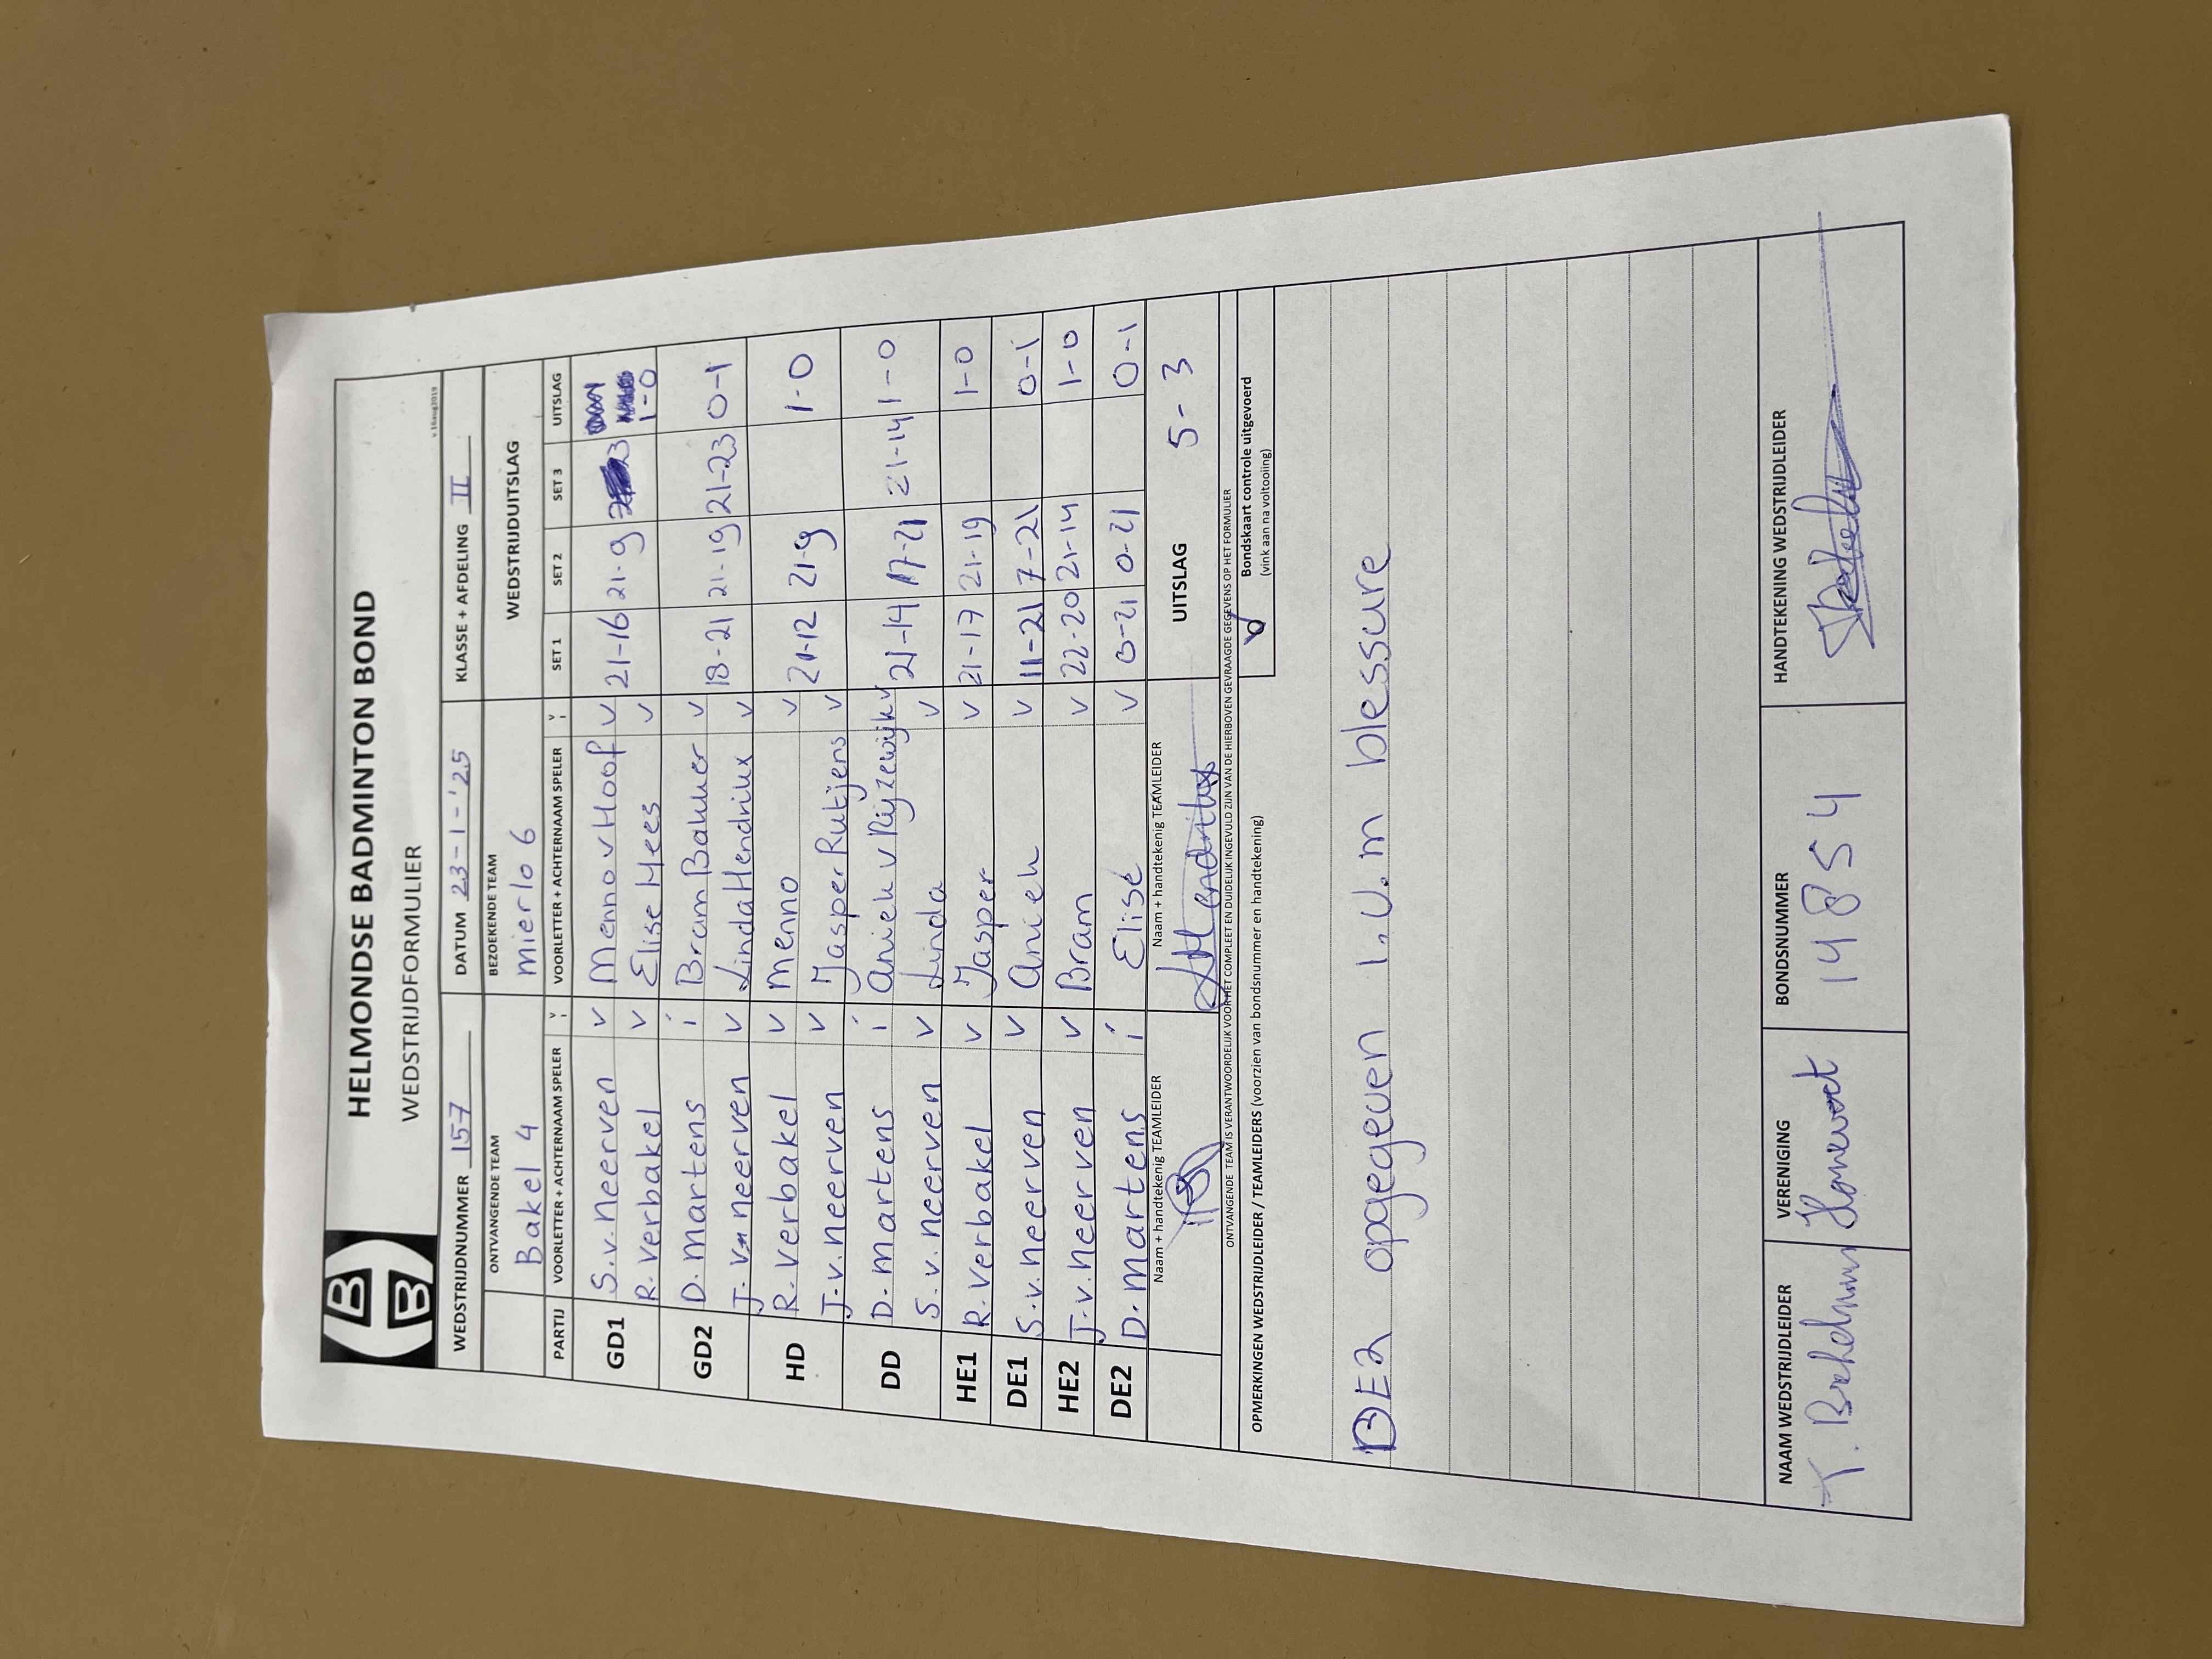 HELMONDSE BADMINTON BOND
WEDSTRIJDFORMULIER
v.16aug2019
WEDSTRIJDNUMMER 157 DATUM 23-1-'25 KLASSE + AFDELING II
ONTVANGENDE TEAM BEZOEKENDE TEAM WEDSTRIJDUITSLAG
Bakel 4 mierlo 6
PARTIJ VOORLETTER + ACHTERNAAM SPELER V I VOORLETTER + ACHTERNAAM SPELER V I SET 1 SET 2 SET 3 UITSLAG
GD1 S.v.neerven v Menno v Hoof v 21-16 21-9 1-0
R.Verbakel v Elise Hees v
GD2 D.martens i Bram Bakker v 18-21 21-19 21-23 0-1
J.v neerven v Linda Hendrikx v
HD R.Verbakel v Menno v 21-12 21-9 1-0
J.v.neerven v Jasper Rutjens v
DD D.martens i Aniek v Rijzewijk v 21-14 17-21 21-14 1-0
S.v.neerven v Linda v
HE1 R.Verbakel v Jasper v 21-17 21-19 1-0
DE1 S.v.neerven v Aniek v 11-21 7-21 0-1
HE2 J.v.neerven v Bram v 22-20 21-14 1-0
DE2 D.martens i Elise v 0-21 0-21 0-1
Naam + handtekenig TEAMLEIDER Naam + handtekenig TEAMLEIDER UITSLAG 5-3
LHendrikx
ONTVANGENDE TEAM IS VERANTWOORDELIJK VOOR HET COMPLEET EN DUIDELIJK INGEVULD ZIJN VAN DE HIERBOVEN GEVRAAGDE GEGEVENS OP HET FORMULIER
OPMERKINGEN WEDSTRIJDLEIDER / TEAMLEIDERS (voorzien van bondsnummer en handtekening) Bondskaart controle uitgevoerd
(vink aan na voltooiing)
DE2 opgegeven i.v.m blessure
NAAM WEDSTRIJDLEIDER VERENIGING BONDSNUMMER HANDTEKENING WEDSTRIJDLEIDER
T. 14854